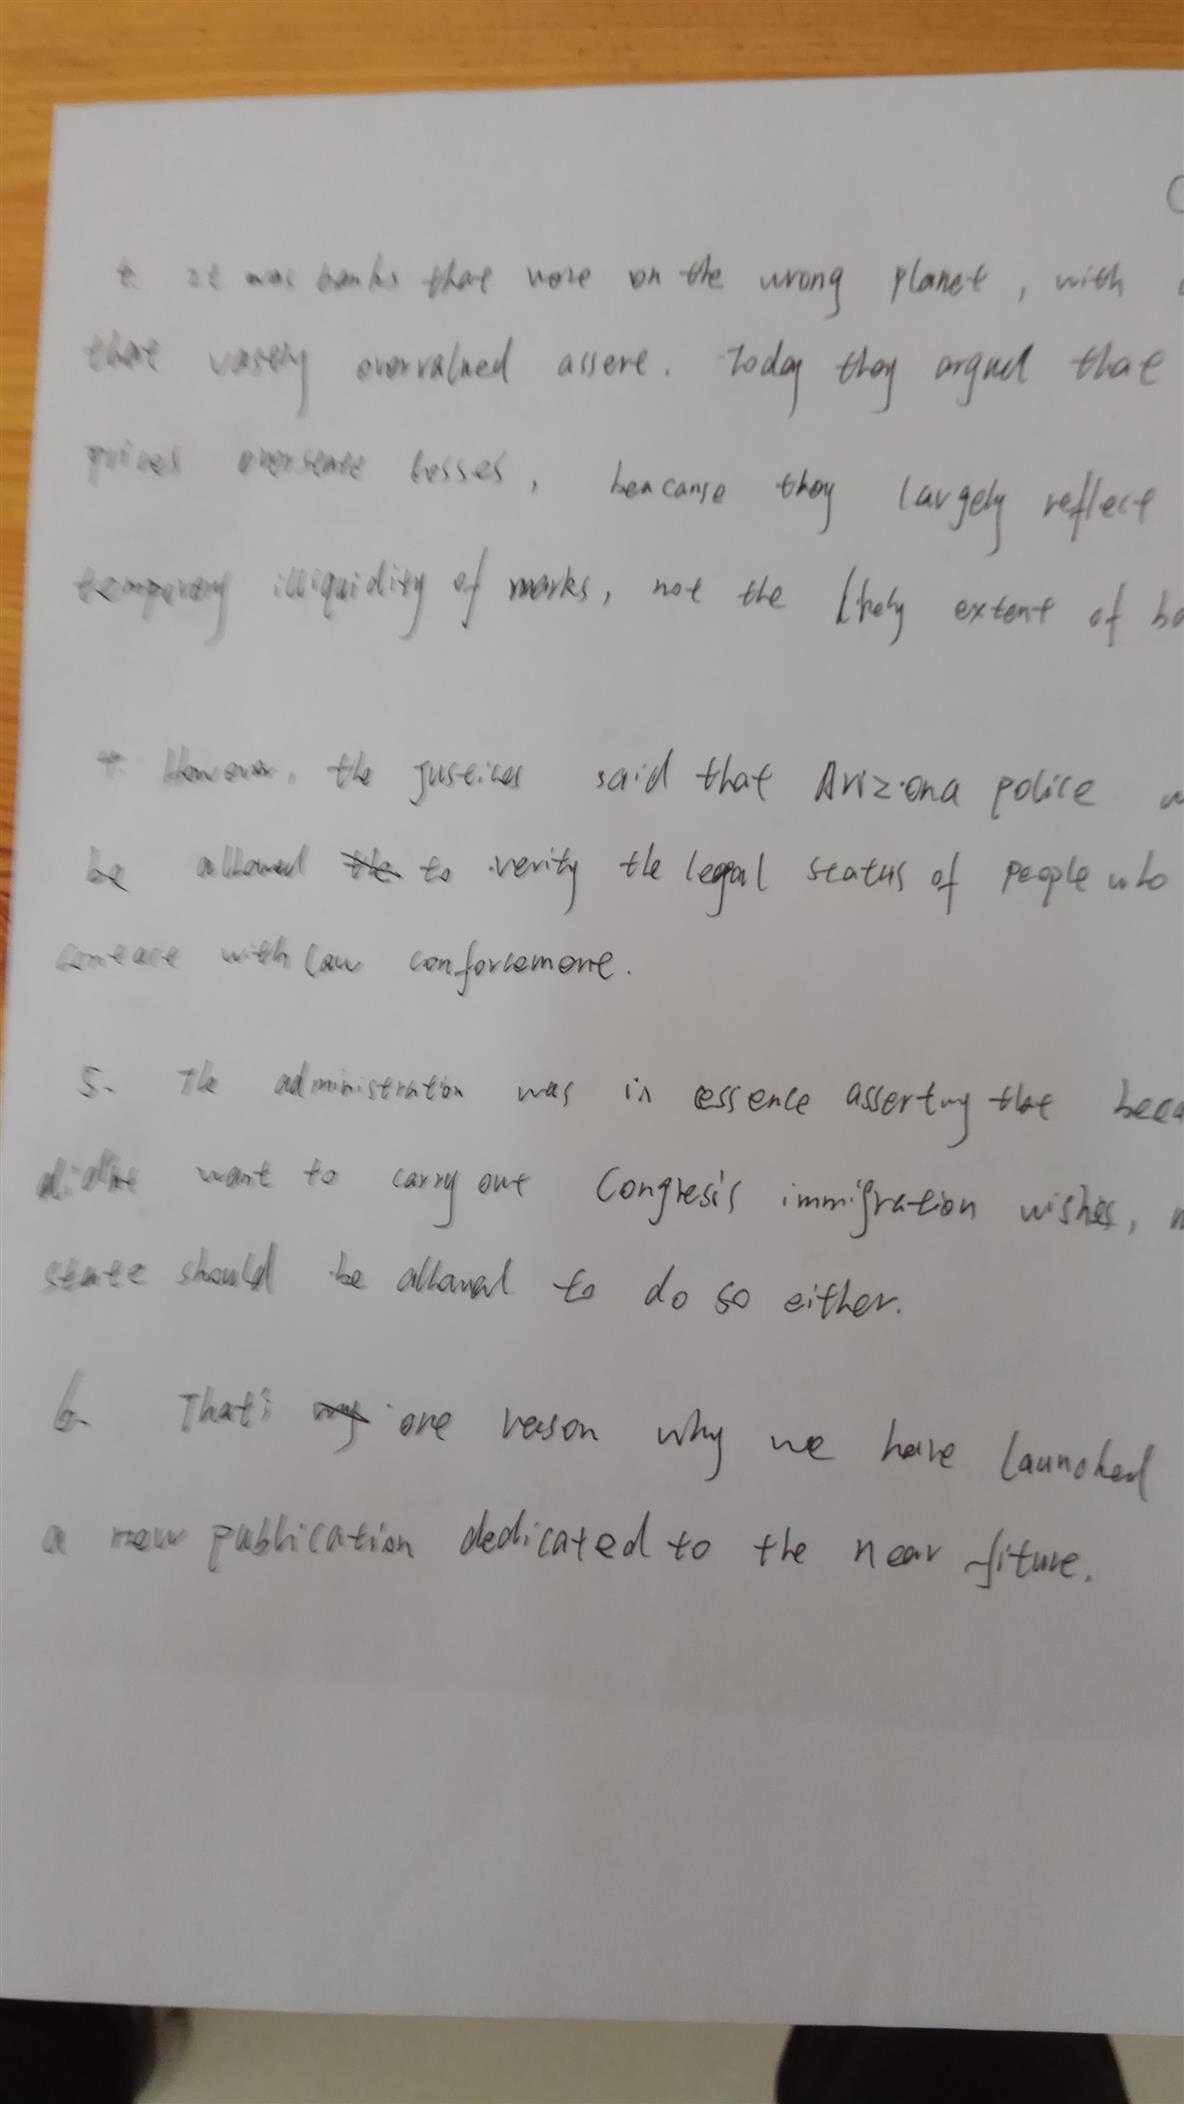 It was banks that were on the wrong planet, with
that vastly overvalued assere. Today they argued that
prices overstate losses, beacause they largely reflect
temporary illiquidity of marks, not the likely extent of
However, the justices said that Arizona police
be allowed to verity the legal status of people who
contact with law conforcement.
5. The administration was in essence asserting that
didn't want to carry out Congress's immigration wishes,
state should be allowed to do so either.
6. That's one reason why we have launched
a new publication dedicated to the near fiture.